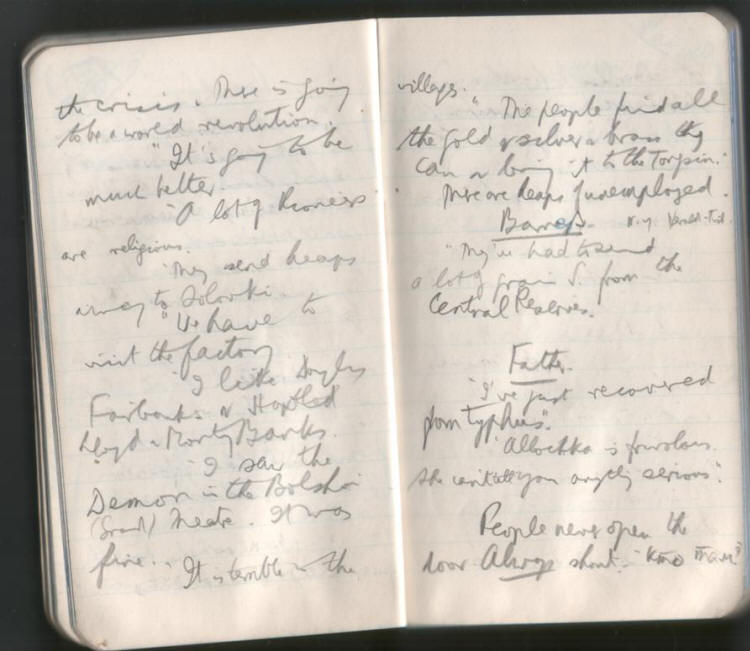 the crisis. There is going
to be a world revolution.
"It's going to be
much better
"A lot of Pioneers
are religious.
"They send heaps
away to Solovki.
"We have to
visit the factory
"I like Douglas
Fairbanks & Harold
Lloyd & Monty Banks.
"I saw the
Demon in the Bolshoi
(Grand) Theatre. It was
fine..
"It is terrible in the
villages.
"The people find all
the gold & silver & brass they
can & bring it to the Torgsin.
There are heaps of unemployed.
Barnes. N.Y. Herald-Trib.
"They've had to send
a lot of grain S. from the
Central Reserves.
Father.
"I've just recovered
from typhus".
"Allochka is frivolous.
She can't tell you anything serious".
People never open the
door. Always shout. "Кто там?"